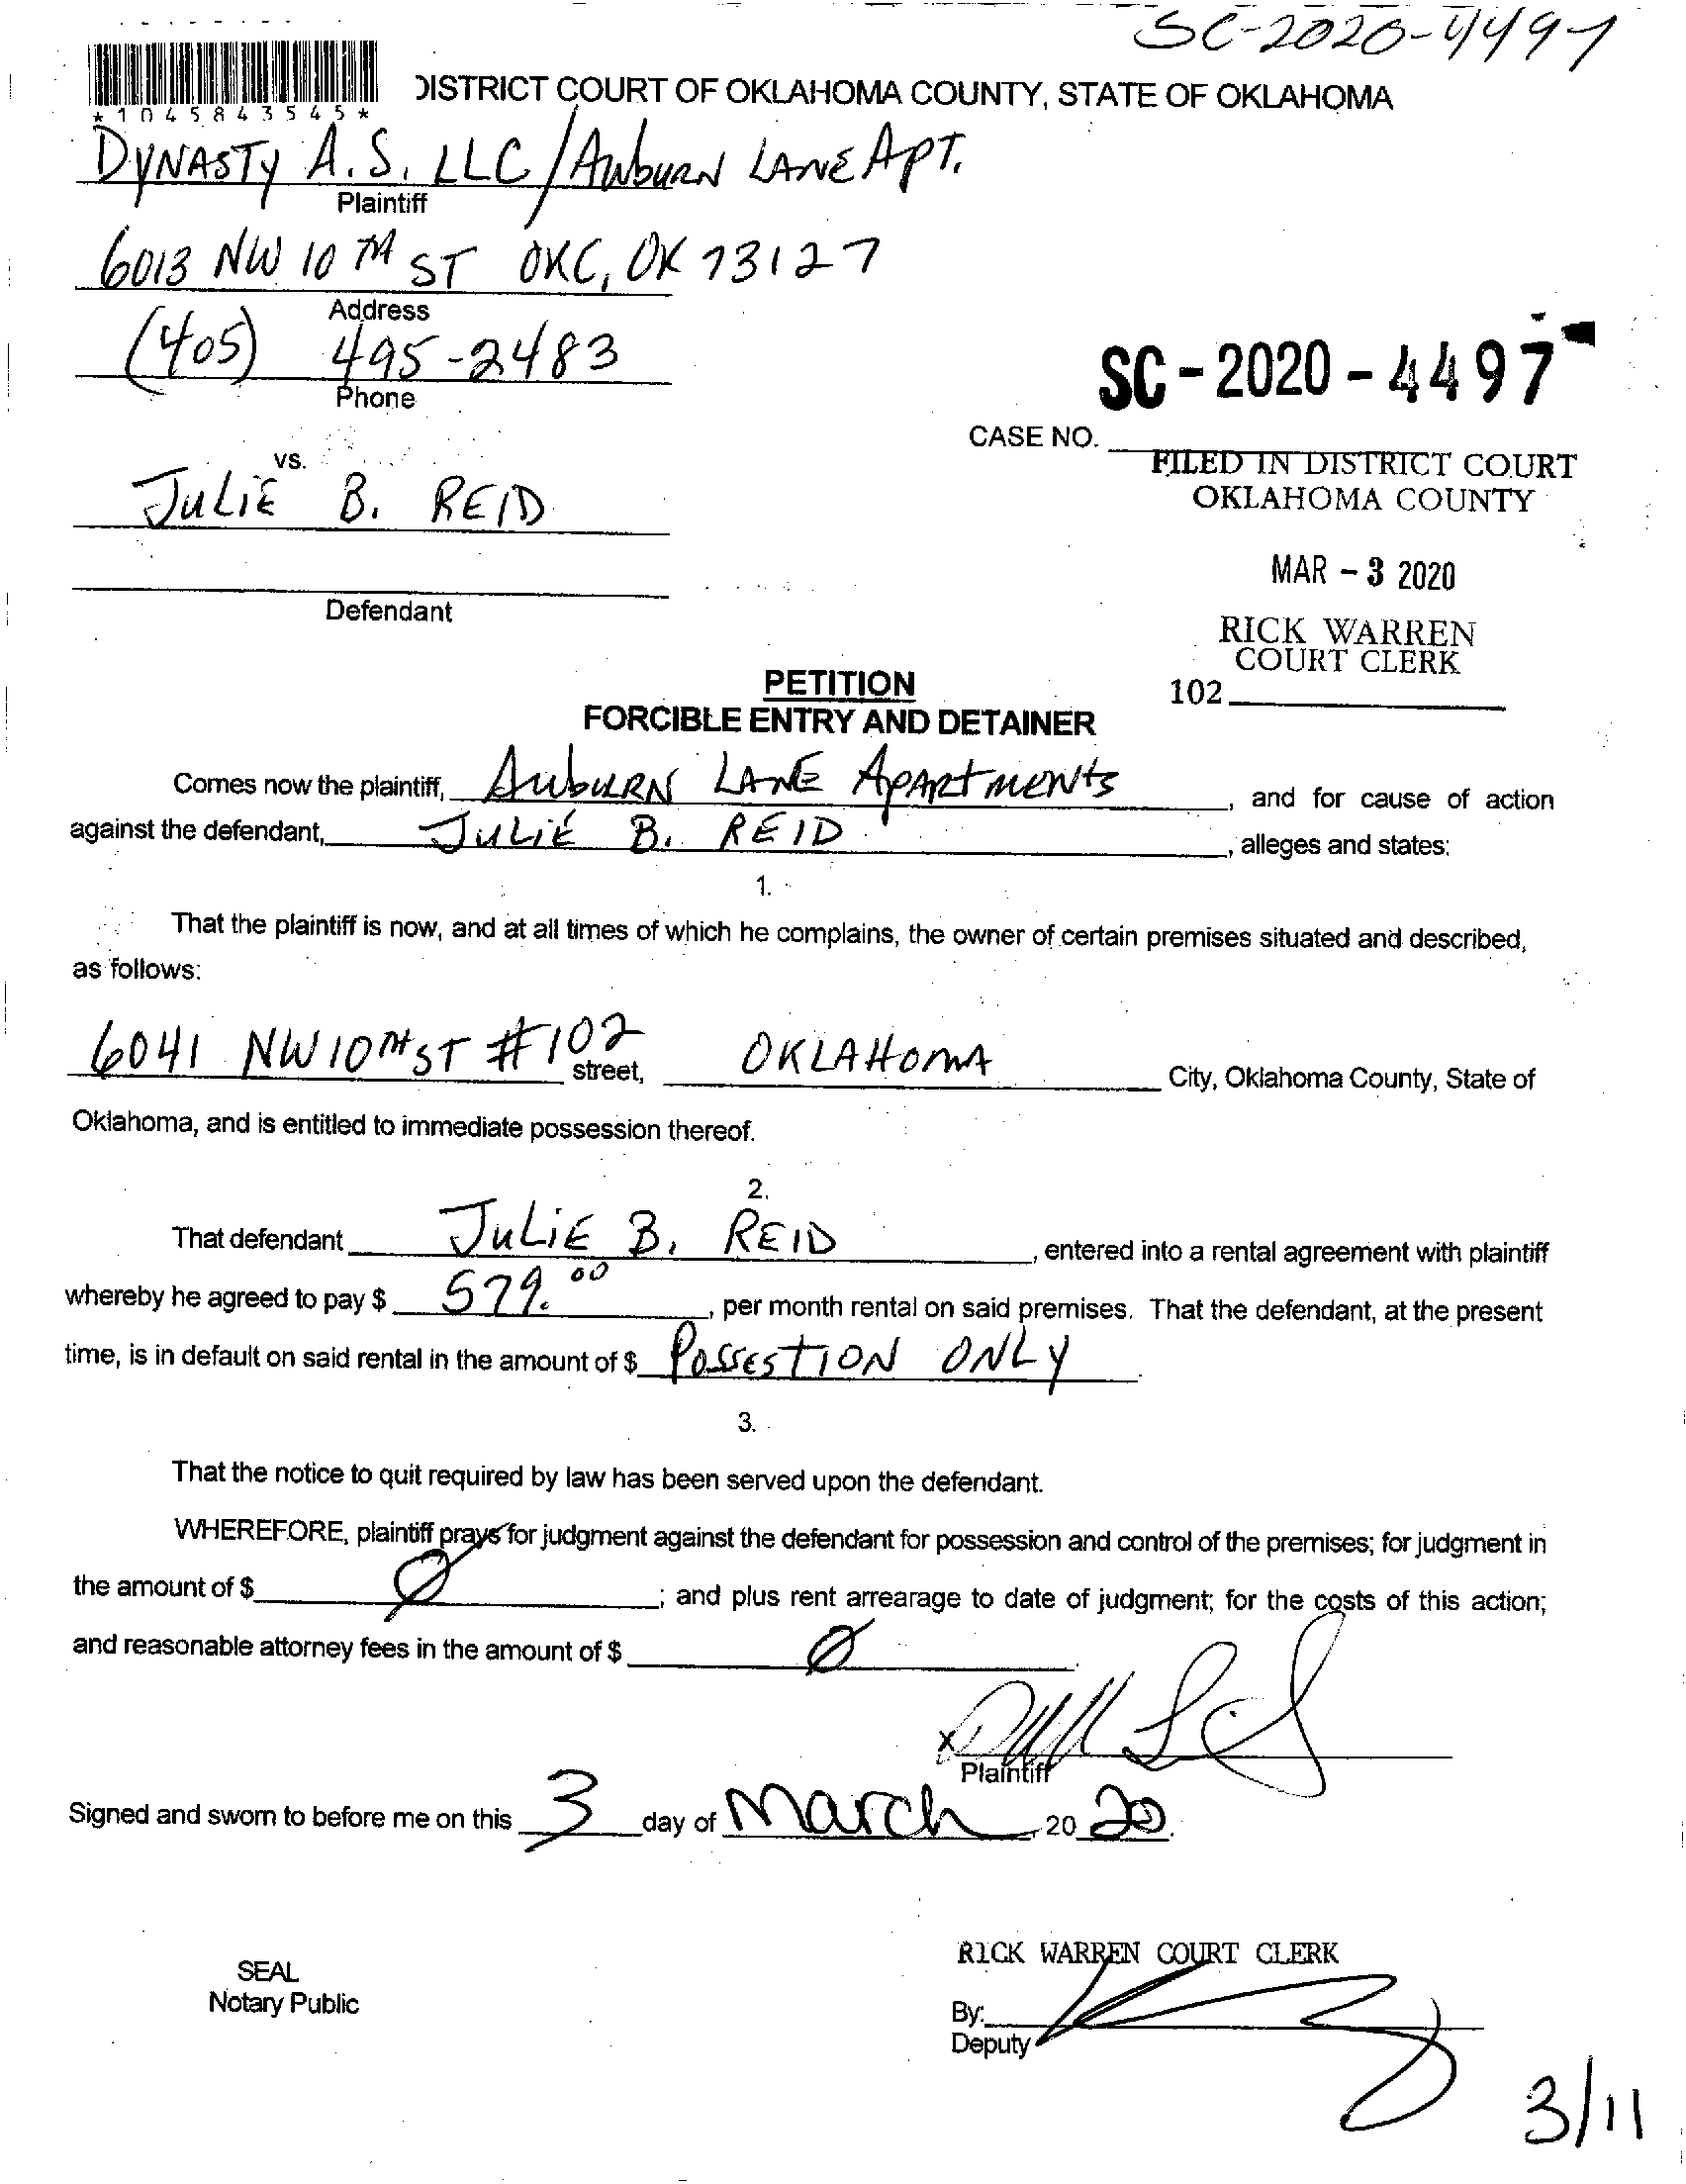 SC-2020-4497
*1045843545*
DISTRICT COURT OF OKLAHOMA COUNTY, STATE OF OKLAHOMA
DYNASTY A.S. LLC / AUBURN LANE APT.
Plaintiff
6013 NW 10TH ST OKC, OK 73127
Address
(405) 495-2483
Phone
SC-2020-4497
CASE NO.
FILED IN DISTRICT COURT
OKLAHOMA COUNTY
vs.
JULIE B. REID
MAR - 3 2020
Defendant
RICK WARREN
COURT CLERK
102
PETITION
FORCIBLE ENTRY AND DETAINER
Comes now the plaintiff, AUBURN LANE APARTMENTS, and for cause of action
against the defendant, JULIE B. REID, alleges and states:
1.
That the plaintiff is now, and at all times of which he complains, the owner of certain premises situated and described,
as follows:
6041 NW 10TH ST #102 street, OKLAHOMA City, Oklahoma County, State of
Oklahoma, and is entitled to immediate possession thereof.
2.
That defendant JULIE B. REID, entered into a rental agreement with plaintiff
whereby he agreed to pay $ 579.00, per month rental on said premises. That the defendant, at the present
time, is in default on said rental in the amount of $ POSSESTION ONLY.
3.
That the notice to quit required by law has been served upon the defendant.
WHEREFORE, plaintiff prays for judgment against the defendant for possession and control of the premises; for judgment in
the amount of $ Ø; and plus rent arrearage to date of judgment; for the costs of this action;
and reasonable attorney fees in the amount of $ Ø.
X
Plaintiff
Signed and sworn to before me on this 3 day of March, 20 20.
RICK WARREN COURT CLERK
SEAL
Notary Public
By:
Deputy
3/11